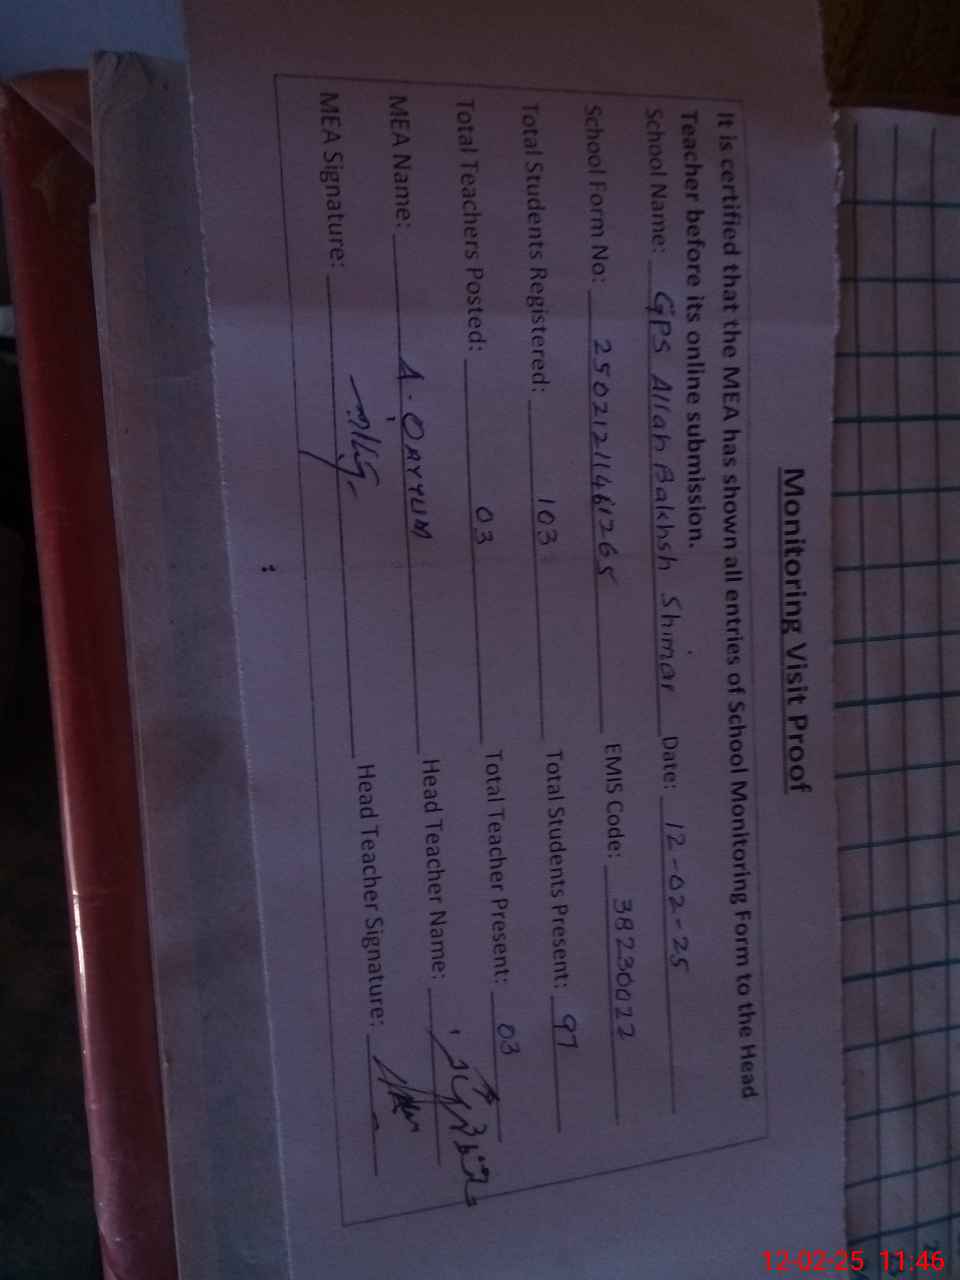 Monitoring Visit Proof
It is certified that the MEA has shown all entries of School Monitoring Form to the Head
Teacher before its online submission.
School Name: GPS Allah Bakhsh Shimar Date: 12-02-25
School Form No: EMIS Code: 38230022
Total Students Registered: 103 Total Students Present: 97
Total Teachers Posted: 03 Total Teacher Present: 03
MEA Name: A. QAYYUM Head Teacher Name:
MEA Signature: Head Teacher Signature:
12-02-25 11:46